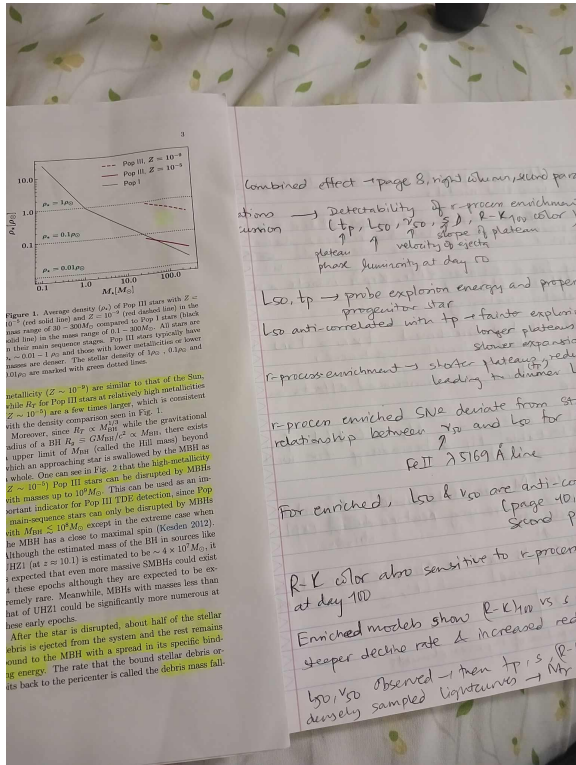 3
Pop III, Z = 10⁻⁸
Pop III, Z = 10⁻⁵
Pop I
10.0
1.0
0.1
ρ⋆ = 1ρ⊙
ρ⋆ = 0.1ρ⊙
ρ⋆ = 0.01ρ⊙
ρ⋆[ρ⊙]
0.1 1.0 10.0 100.0
M⋆[M⊙]
Figure 1. Average density (ρ⋆) of Pop III stars with Z =
10⁻⁵ (red solid line) and Z = 10⁻⁸ (red dashed line) in the
mass range of 30 − 300M⊙ compared to Pop I stars (black
solid line) in the mass range of 0.1 − 300M⊙. All stars are
their main sequence stages. Pop III stars typically have
∼ 0.01 − 1 ρ⊙ and those with lower metallicities or lower
masses are denser. The stellar density of 1ρ⊙, 0.1ρ⊙ and
.01ρ⊙ are marked with green dotted lines.
metallicity (Z ∼ 10⁻⁹) are similar to that of the Sun,
while R_T for Pop III stars at relatively high metallicities
Z ∼ 10⁻⁵) are a few times larger, which is consistent
with the density comparison seen in Fig. 1.
Moreover, since R_T ∝ M_BH^{1/3} while the gravitational
radius of a BH R_g ≡ GM_BH/c² ∝ M_BH, there exists
upper limit of M_BH (called the Hill mass) beyond
which an approaching star is swallowed by the MBH as
whole. One can see in Fig. 2 that the high-metallicity
Z ∼ 10⁻⁵) Pop III stars can be disrupted by MBHs
with masses up to 10⁹M⊙. This can be used as an im-
portant indicator for Pop III TDE detection, since Pop
main-sequence stars can only be disrupted by MBHs
with M_BH ≲ 10⁸M⊙ except in the extreme case when
the MBH has a close to maximal spin (Kesden 2012).
Although the estimated mass of the BH in sources like
UHZ1 (at z ≈ 10.1) is estimated to be ∼ 4 × 10⁷M⊙, it
expected that even more massive SMBHs could exist
these epochs although they are expected to be ex-
remely rare. Meanwhile, MBHs with masses less than
that of UHZ1 could be significantly more numerous at
these early epochs.
After the star is disrupted, about half of the stellar
debris is ejected from the system and the rest remains
bound to the MBH with a spread in its specific bind-
ng energy. The rate that the bound stellar debris or-
bits back to the pericenter is called the debris mass fall-
Combined effect → page 8, right column, second para
→ Detectability of r-process enrichmen
(tp, L50, v50, s), R-K100 color
plateau phase ↑ luminosity at day 50 ↑ velocity of ejecta ↑ slope of plateau
L50, tp → probe explosion energy and proper
progenitor star
L50 anti-correlated with tp → fainter explosi
longer plateau
slower expansio
r-process enrichment → shorter plateau, redu
leading to dimmer L
r-process enriched SNe deviate from st
relationship between v50 and L50 for
↑
FeII λ5169 Å line
For enriched, L50 & v50 are anti-co
(page 10,
second p
R-K color also sensitive to r-process
at day 100
Enriched models show (R-K)100 vs s
steeper decline rate & increased red
L50, v50 observed → then tp, s, (R-
densely sampled lightcurves →